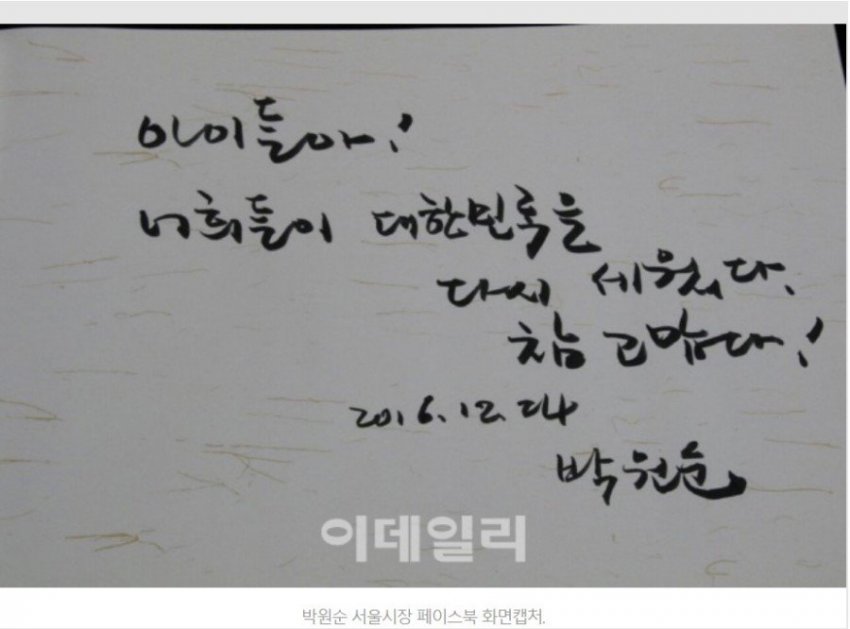 아이들아!
너희들이 대한민국을
다시 세웠다.
참 고맙다!
2016.12.24
박원순
이데일리
박원순 서울시장 페이스북 화면캡처.